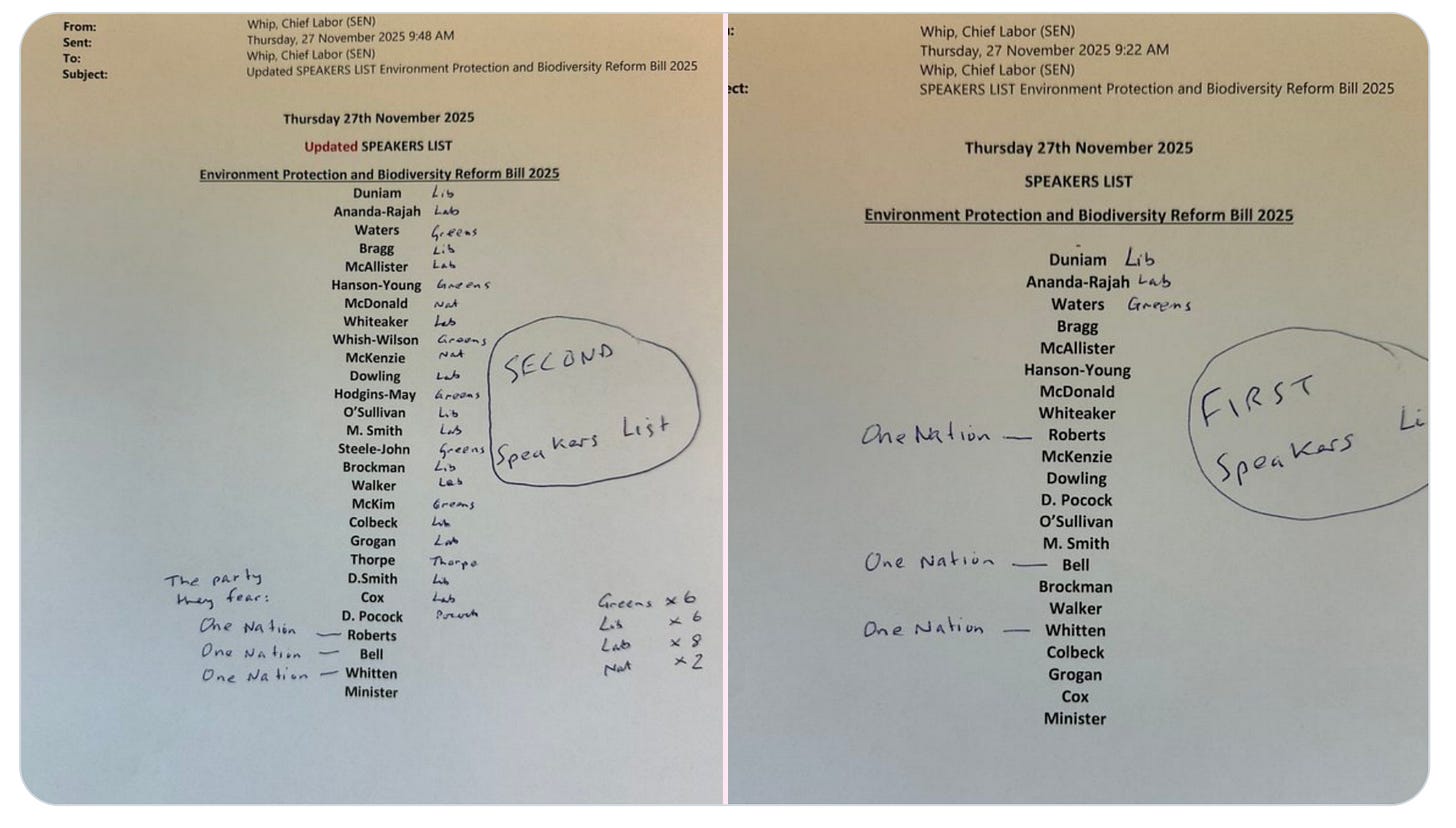 From: Whip, Chief Labor (SEN)
Sent: Thursday, 27 November 2025 9:48 AM
To: Whip, Chief Labor (SEN)
Subject: Updated SPEAKERS LIST Environment Protection and Biodiversity Reform Bill 2025
Thursday 27th November 2025
Updated SPEAKERS LIST
Environment Protection and Biodiversity Reform Bill 2025
Duniam Lib
Ananda-Rajah Lab
Waters Greens
Bragg Lib
McAllister Lab
Hanson-Young Greens
McDonald Nat
Whiteaker Lab
Whish-Wilson Greens
McKenzie Nat
Dowling Lab
Hodgins-May Greens
O'Sullivan Lib
M. Smith Lab
Steele-John Greens
Brockman Lib
Walker Lab
McKim Greens
Colbeck Lib
Grogan Lab
Thorpe Thorpe
D.Smith Lib
Cox Lab
D. Pocock Pocock
The party
they fear:
One Nation — Roberts
One Nation — Bell
One Nation — Whitten
Minister
SECOND
Speakers List
Greens x 6
Lib x 6
Lab x 8
Nat x 2
Whip, Chief Labor (SEN)
Thursday, 27 November 2025 9:22 AM
Whip, Chief Labor (SEN)
ect: SPEAKERS LIST Environment Protection and Biodiversity Reform Bill 2025
Thursday 27th November 2025
SPEAKERS LIST
Environment Protection and Biodiversity Reform Bill 2025
Duniam Lib
Ananda-Rajah Lab
Waters Greens
Bragg
McAllister
Hanson-Young
McDonald
Whiteaker
One Nation — Roberts
McKenzie
Dowling
D. Pocock
O'Sullivan
M. Smith
One Nation — Bell
Brockman
Walker
One Nation — Whitten
Colbeck
Grogan
Cox
Minister
FIRST
Speakers Li